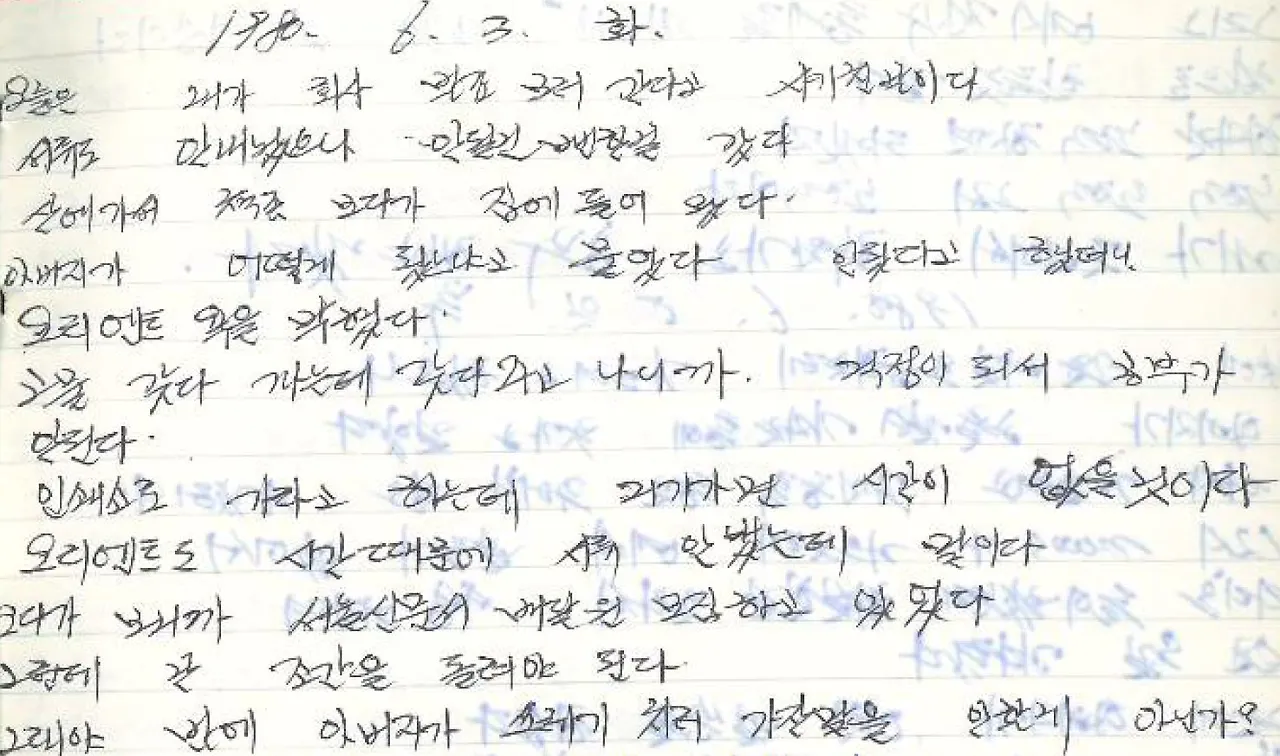 1980. 6. 3. 화.
오늘은 내가 회사 발표 보러 간다고 사기친 날이다
서류도 안내놨으나 안될건 뻔한걸 갔다
산에가서 책좀 보다가 집에 들어 왔다.
아버지가 어떻게 됐느냐고 물었다 안됐다고 했더니.
오리엔트 욕을 막했다.
오늘 갖다 까는데 갖다주고 나니까. 걱정이 되서 공부가
안된다.
인쇄소로 가라고 하는데 거기가면 시간이 없을 것이다
오리엔트도 시간 때문에 서류 안 냈는데 말이다
오다가 보니까 서울신문에서 배달원 모집하고 있었다
그런데 난 조간을 돌려야 된다.
그래야 밤에 아버지가 쓰레기 치러 가잔말을 안할게 아닌가?